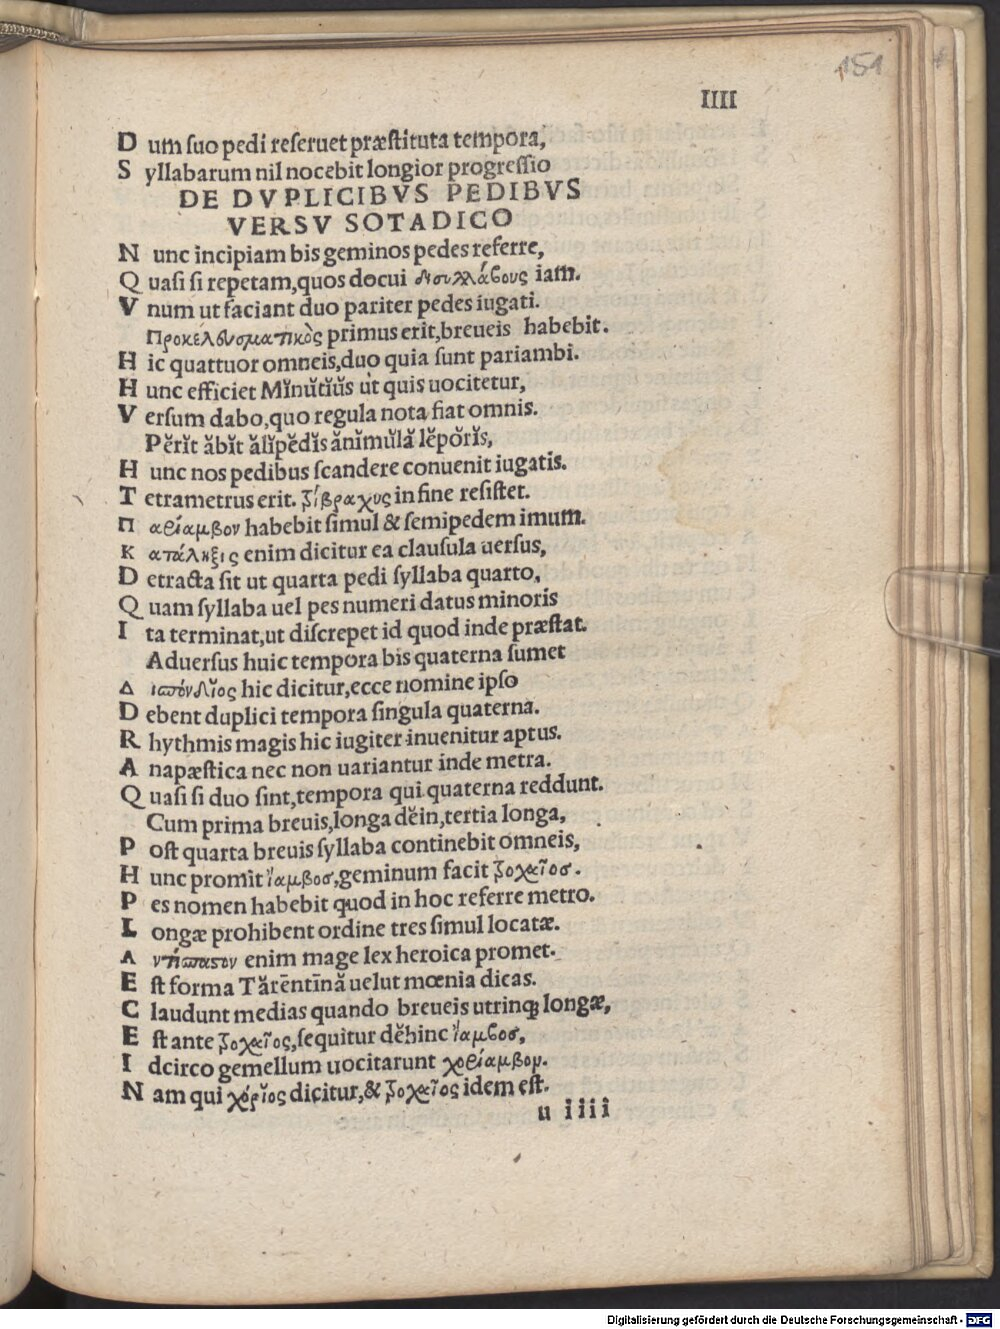 151
IIII
D um suo pedi reseruet præstituta tempora,
S yllabarum nil nocebit longior progressio
DE DVPLICIBVS PEDIBVS
VERSV SOTADICO
N unc incipiam bis geminos pedes referre,
Q uasi si repetam,quos docui δισυλλάβους iam.
V num ut faciant duo pariter pedes iugati.
Προκελευσματικὸς primus erit,breueis habebit.
H ic quattuor omneis,duo quia sunt pariambi.
H unc efficiet Mĭnŭtĭŭs ut quis uocitetur,
V ersum dabo,quo regula nota fiat omnis.
Pĕrĭt ăbĭt ălĭpĕdĭs ănĭmŭlă lĕpŏrĭs,
H unc nos pedibus scandere conuenit iugatis.
T etrametrus erit. τρίβραχυς in fine resistet.
Π αρίαμβον habebit simul & semipedem imum.
Κ ατάληξις enim dicitur ea clausula uersus,
D etracta sit ut quarta pedi syllaba quarto,
Q uam syllaba uel pes numeri datus minoris
I ta terminat,ut discrepet id quod inde præstat.
Aduersus huic tempora bis quaterna sumet
Δ ισπόνδιος hic dicitur,ecce nomine ipso
D ebent duplici tempora singula quaterna.
R hythmis magis hic iugiter inuenitur aptus.
A napæstica nec non uariantur inde metra.
Q uasi si duo sint,tempora qui quaterna reddunt.
Cum prima breuis,longa dĕin,tertia longa,
P ost quarta breuis syllaba continebit omneis,
H unc promit ἴαμβοσ,geminum facit τροχαῖοσ.
P es nomen habebit quod in hoc referre metro.
L ongæ prohibent ordine tres simul locatæ.
Α ντίσπαστον enim mage lex heroica promet.
E st forma Tărēntīnă uelut mœnia dicas.
C laudunt medias quando breueis utrinq; longæ,
E st ante τροχαῖος,sequitur dĕhinc ἴαμβοσ,
I dcirco gemellum uocitarunt χορίαμβον.
N am qui χόριος dicitur,& τροχαῖος idem est.
u iiii
Digitalisierung gefördert durch die Deutsche Forschungsgemeinschaft - DFG